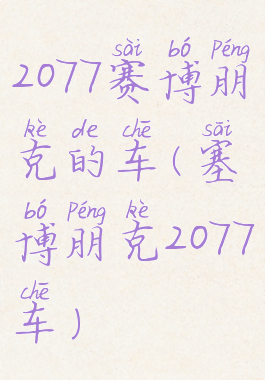 sài bó Péng
2077赛博朋
kè de chē sāi
克的车(塞
bó Péng kè
博朋克2077
chē
车)